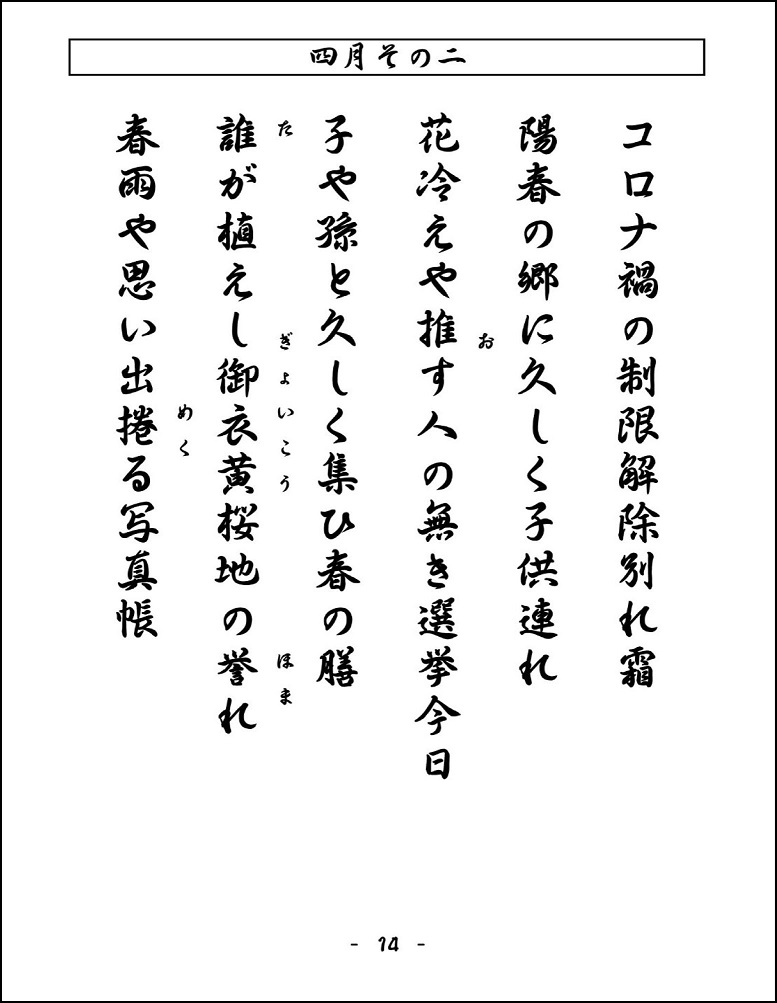 四月その二
コロナ禍の制限解除別れ霜
陽春の郷に久しく子供連れ
花冷えや推す人の無き選挙今日
お
子や孫と久しく集ひ春の膳
誰が植えし御衣黄桜地の誉れ
た ぎょいこう ほま
春雨や思い出捲る写真帳
めく
- 14 -